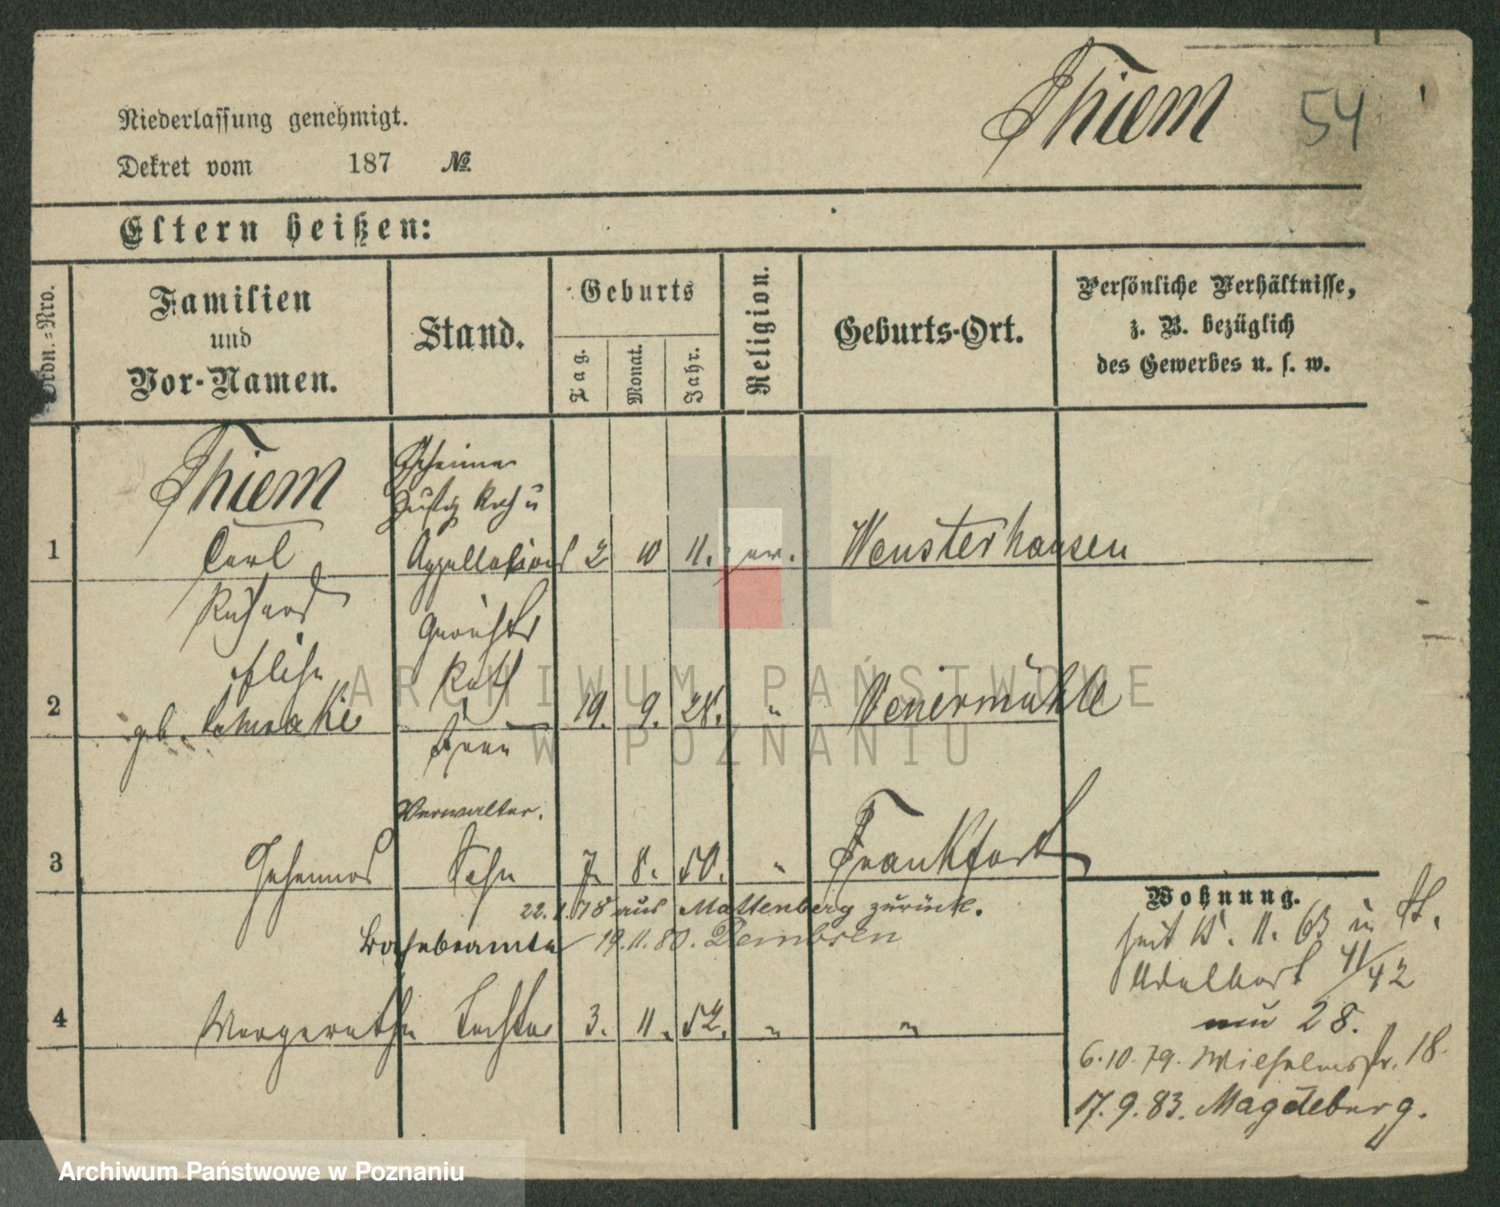 Thiem 54
Niederlassung genehmigt.
Dekret vom 187 No.
Eltern heißen:
Ordn.=Nro.
Familien
und
Vor-Namen.
Stand.
Geburts
Tag.
Monat.
Jahr.
Religion.
Geburts-Ort.
Persönliche Verhältnisse,
z. B. bezüglich
des Gewerbes u. s. w.
Thiem
Geheimer
Justiz Rath u
1 Carl Appellations 2 10 11. ev. Wensterhausen
Richard
Gerichts
Rath
2 geb. 19. 9. 28. " Veniermühle
Frau
Verwalter.
3 Johannes Sohn 7. 8. 50. " Frankfort
22. 1. 78 aus Mattenberg zurück.
Bahnbeamter 19.11.80. Dembsen
4 Margarethe Tochter 3. 11. 52. " "
Wohnung.
seit 15. 11. 63 in St.
Adalbert 41/42
nun 28.
6.10.79. Wilhelmsstr. 18.
17.9.83. Magdeburg.
ARCHIWUM PAŃSTWOWE
W POZNANIU
Archiwum Państwowe w Poznaniu